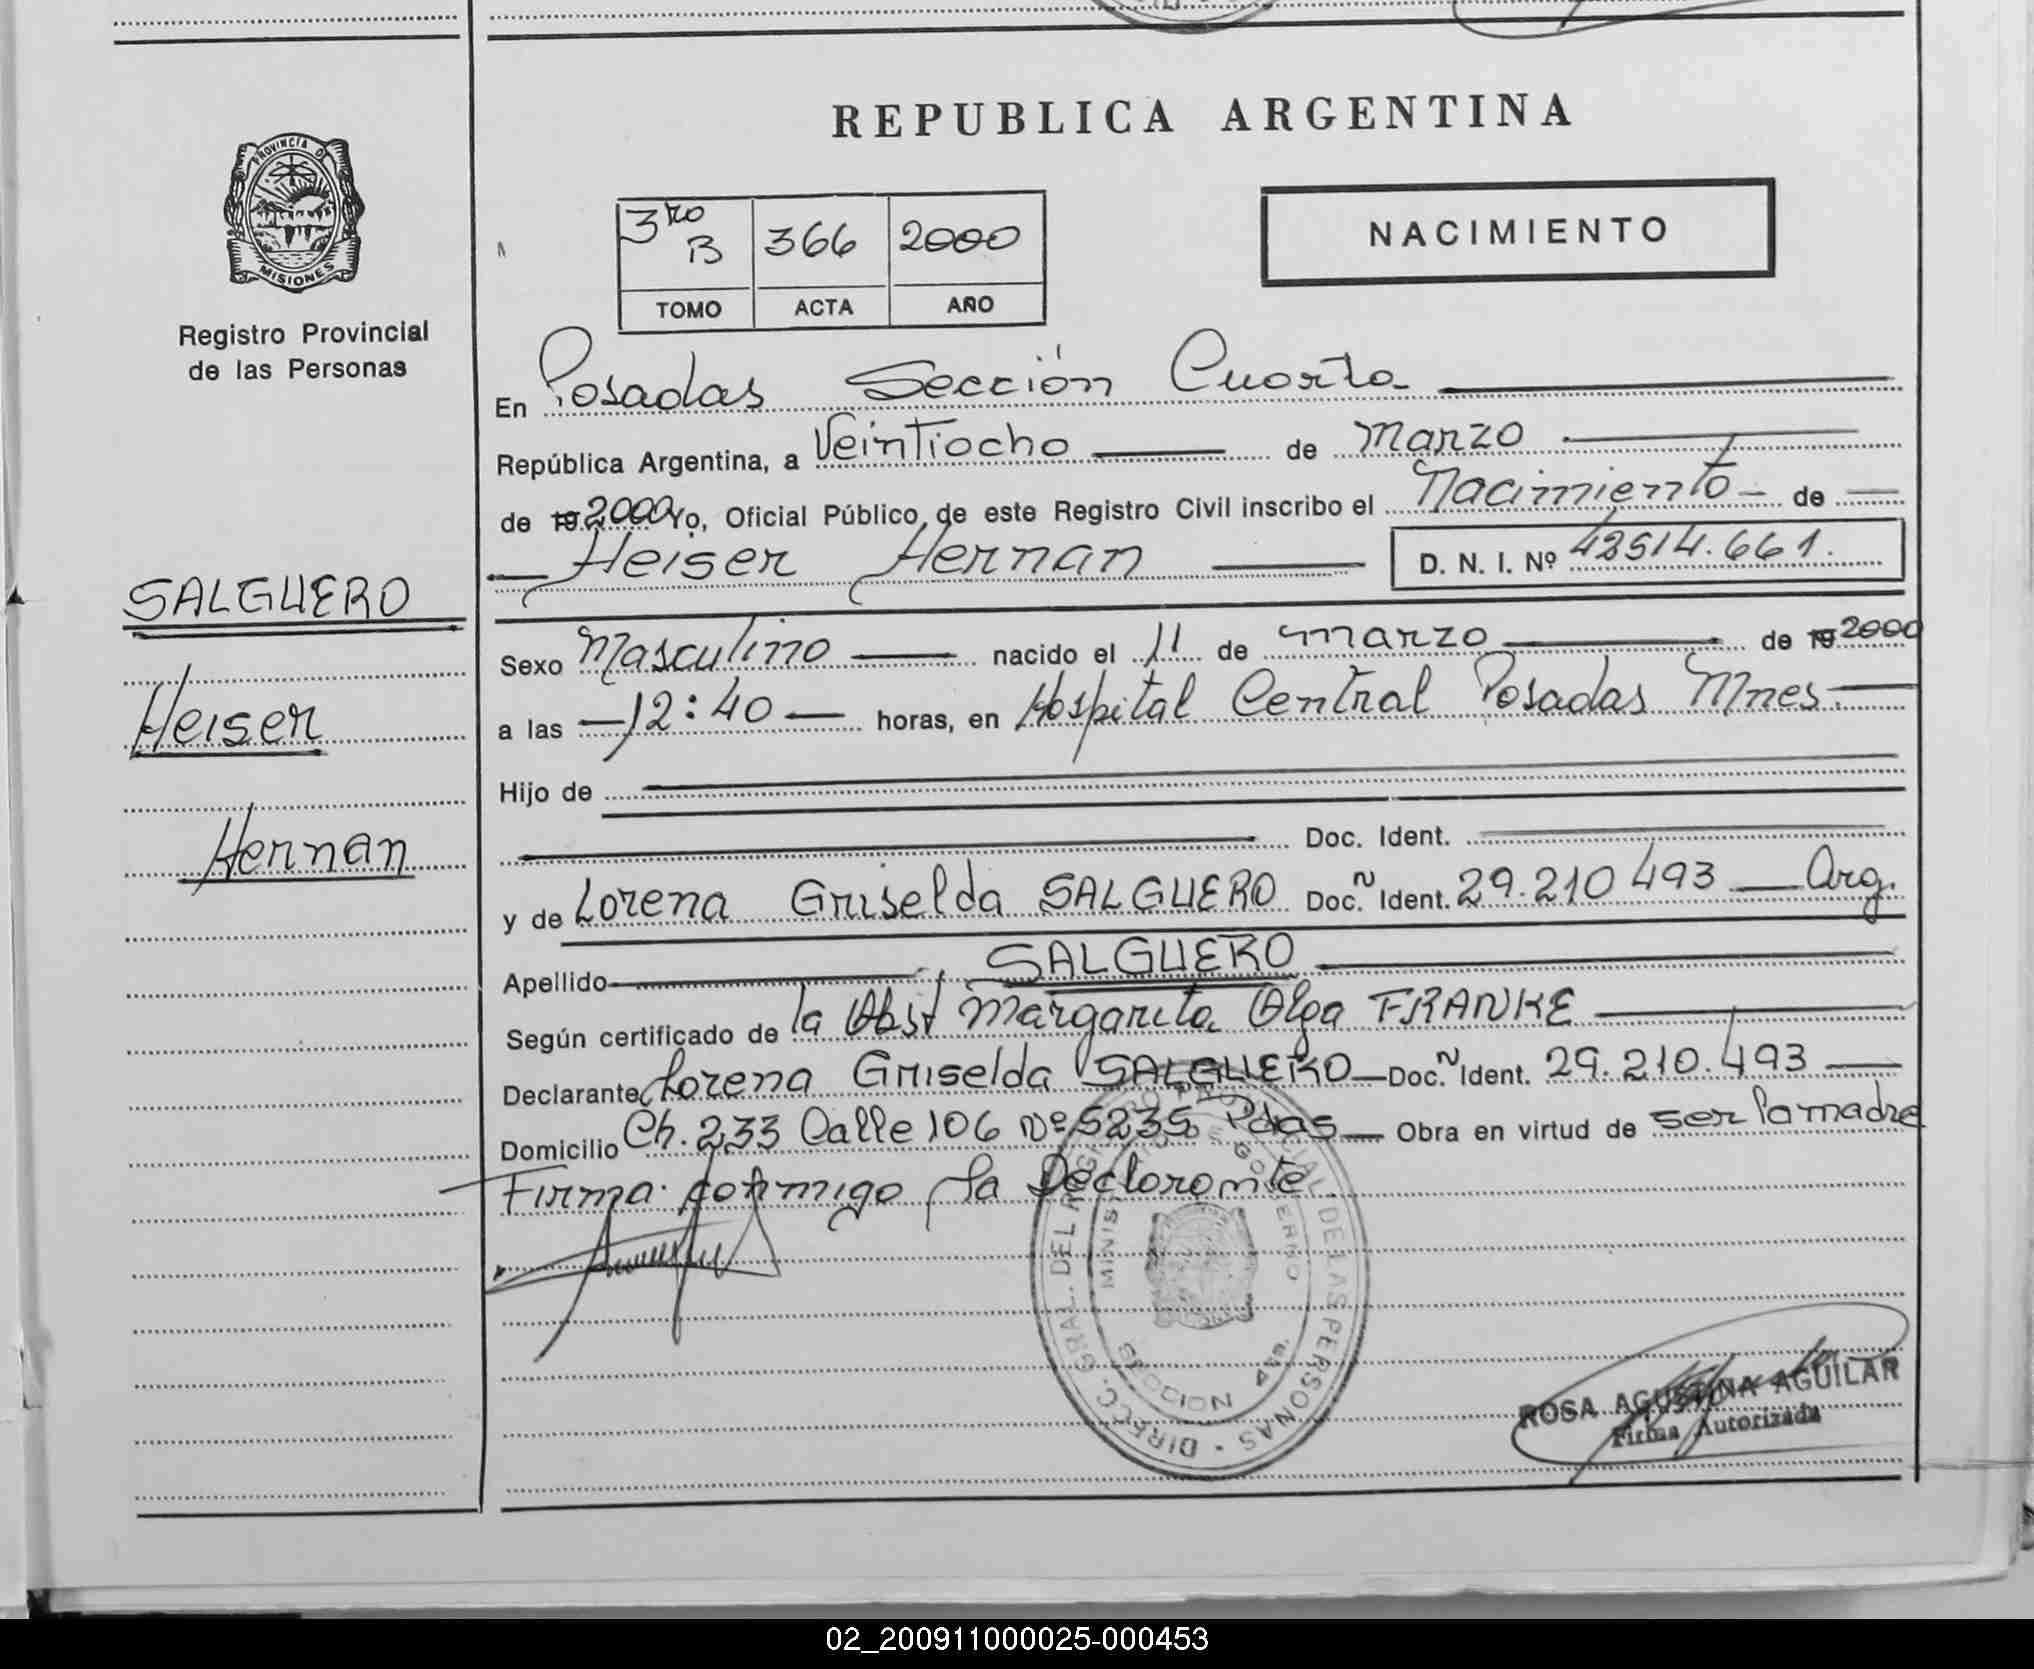 REPUBLICA ARGENTINA
PROVINCIA DE
MISIONES
Registro Provincial
de las Personas
3ro B 366 2000
TOMO ACTA AÑO
NACIMIENTO
En Posadas Sección Cuarta
República Argentina, a Veintiocho de Marzo
de 19 2000 Yo, Oficial Público de este Registro Civil inscribo el Nacimiento de
Heiser Hernan D. N. I. Nº 42514.661.
SALGUERO
Heiser
Hernan
Sexo Masculino nacido el 11 de marzo de 19 2000
a las 12:40 horas, en Hospital Central Posadas Mnes.
Hijo de
Doc. Ident.
y de Lorena Griselda SALGUERO Doc. Ident. 29.210 493 Arg.
Apellido SALGUERO
Según certificado de la Obst Margarita Olga FRANKE
Declarante Lorena Griselda SALGUERO Doc. Ident. 29.210.493
Domicilio Ch. 233 Calle 106 Nº 5235 Pdas Obra en virtud de ser la madre
Firma conmigo la Declarante.
DIRECC. GRAL. DEL REGISTRO PROVINCIAL DE LAS PERSONAS
MINISTERIO DE GOBIERNO
SECCION 4ta.
ROSA AGUSTINA AGUILAR
Firma Autorizada
02_200911000025-000453